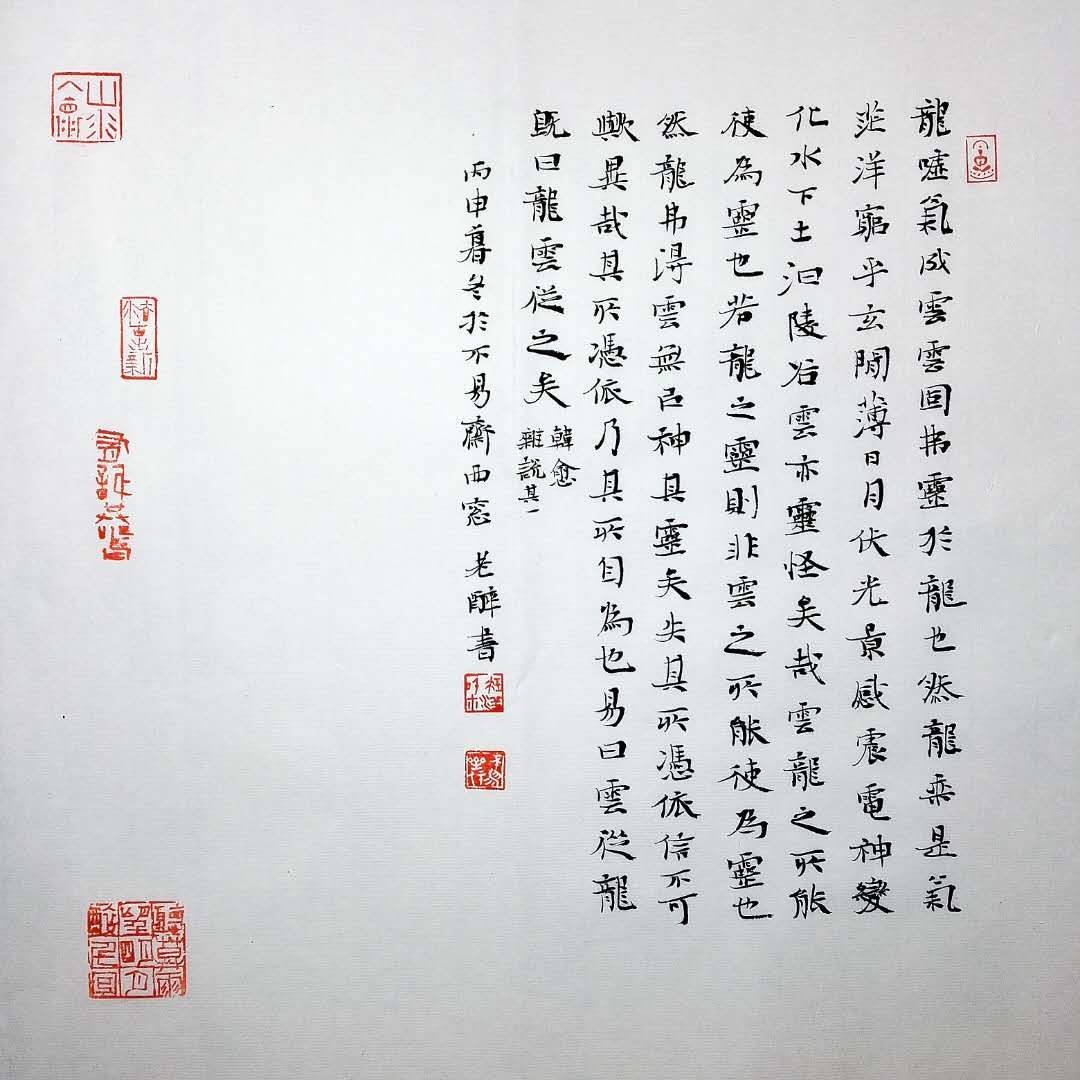 龍噓氣成雲雲固弗靈於龍也然龍乘是氣
茫洋窮乎玄間薄日月伏光景感震電神變
化水下土汩陵谷雲亦靈怪矣哉雲龍之所能
使為靈也若龍之靈則非雲之所能使為靈也
然龍弗得雲無㠯神其靈矣失其所憑依信不可
歟異哉其所憑依乃其所自為也易曰雲從龍
既曰龍雲從之矣
韓愈
雜説其一
丙申暮冬於不易齋西窓 老醉書